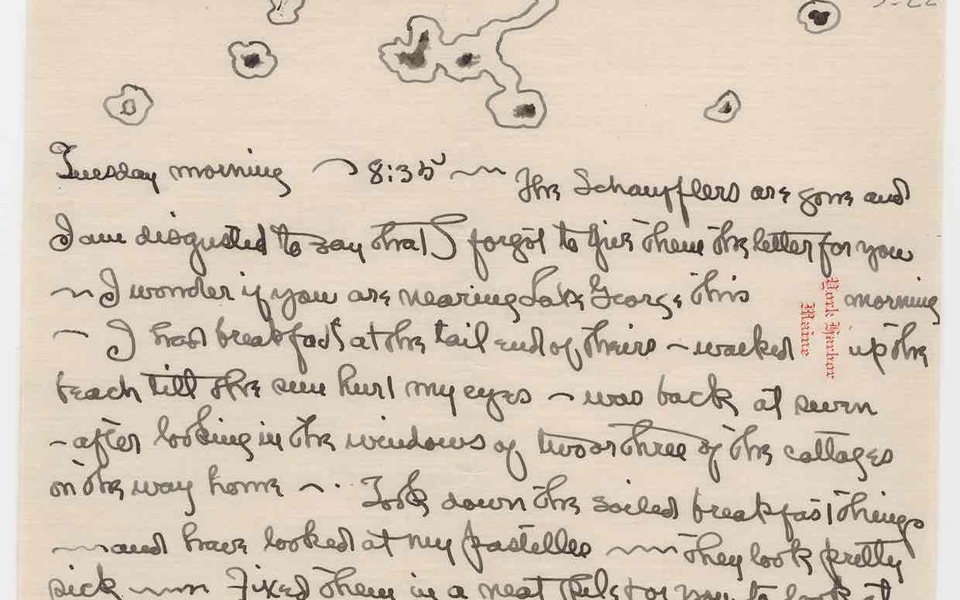 5-22
Tuesday morning ~ 8:35 ~~ The Schaufflers are gone and
I am disgusted to say that I forgot to give them the letter for you
~ I wonder if you are nearing Lake George this morning
York Harbor
Maine
~ I had breakfast at the tail end of theirs ~ walked up the
beach till the sun hurt my eyes ~ was back at seven
~ after looking in the windows of two or three of the cottages
on the way home ~ .. Took down the soiled breakfast things
~~ and have looked at my pastelles ~~ they look pretty
sick ~~ Fixed them in a neat pile for you to look at